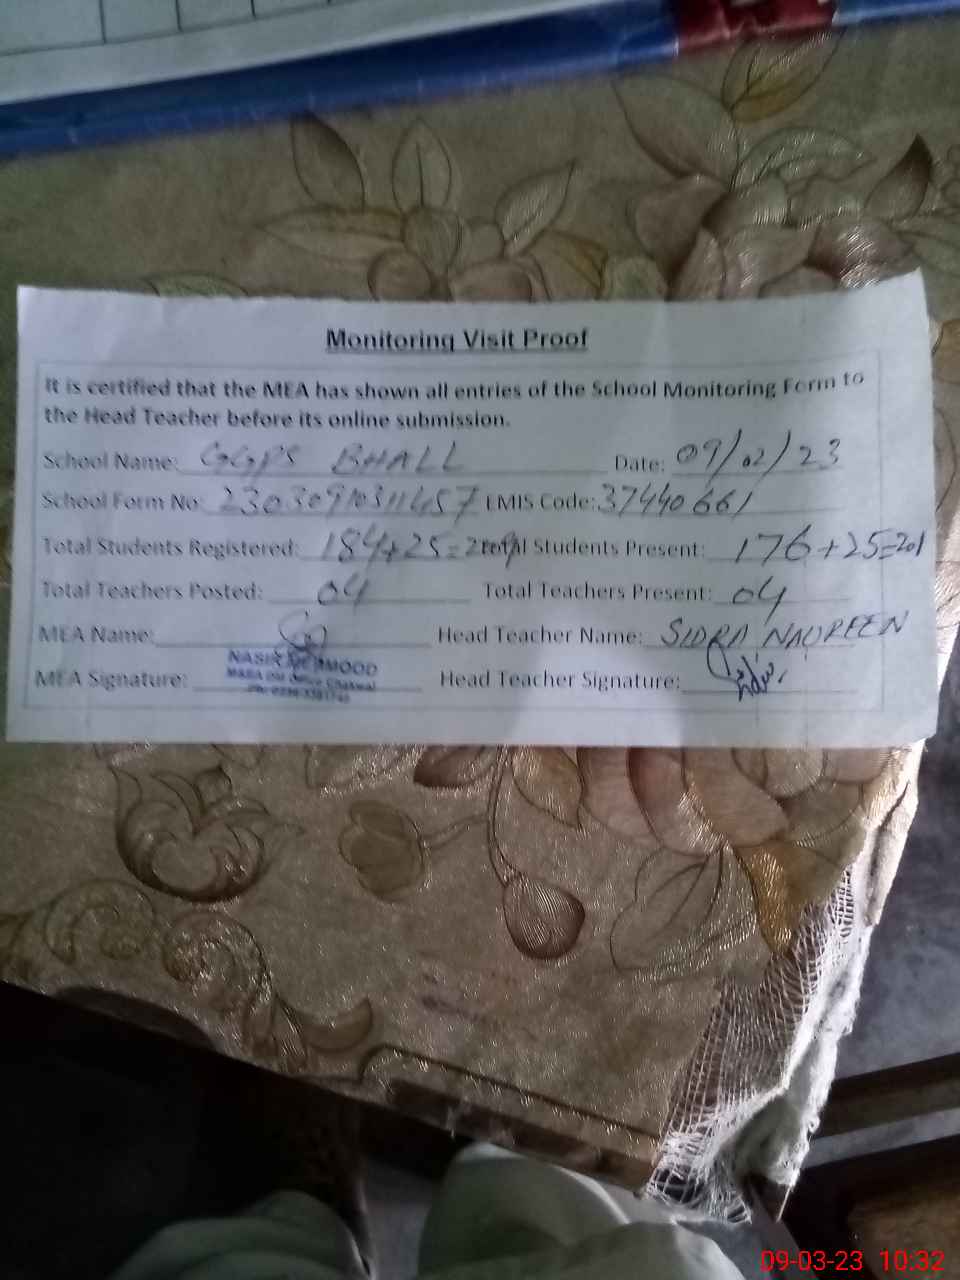 Monitoring Visit Proof
It is certified that the MEA has shown all entries of the School Monitoring Form to
the Head Teacher before its online submission.
School Name: GGPS BHALL Date: 09/02/23
School Form No: 23030910311457 EMIS Code: 37440661
Total Students Registered: 184+25=209 Total Students Present: 176+25=201
Total Teachers Posted: 04 Total Teachers Present: 04
MEA Name: Head Teacher Name: SIDRA NAUREEN
NASIR MEHMOOD
MEA Signature: Head Teacher Signature:
09-03-23 10:32